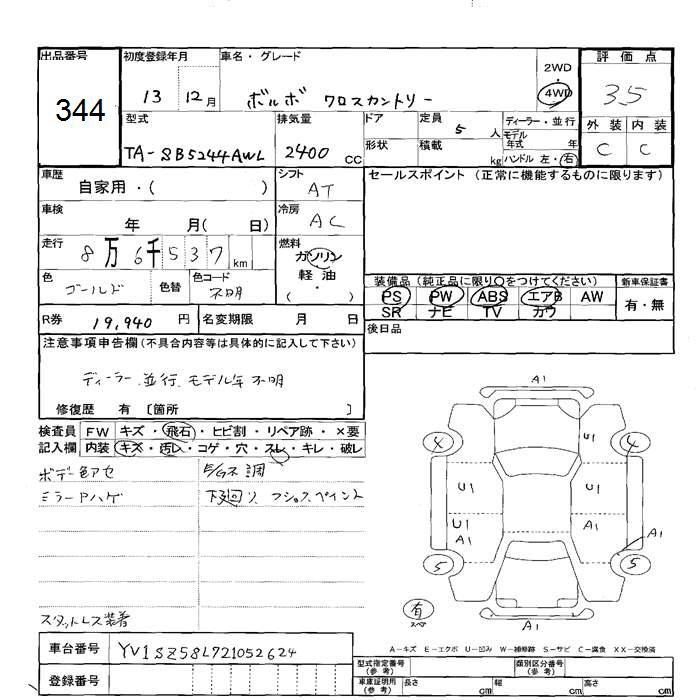 出品番号 初度登録年月 車名・グレード 2WD ・ 4WD 評価点
344 13 12月 ボルボ クロスカントリー 35
外装 内装
C C
型式 排気量 ドア 定員 5 人 ディーラー・並行
モデル年式 年
TA-SB5244AWL 2400 CC 形状 積載 kg ハンドル 左・右
車歴 自家用・( ) シフト AT セールスポイント (正常に機能するものに限ります)
車検 年 月( 日) 冷房 AC
走行 8万6千537km 燃料 ガソリン
軽油
・( )
色 ゴールド 色替 色コード 不明
装備品 (純正品に限り○をつけてください) 新車保証書
PS PW ABS エアB AW 有・無
SR ナビ TV カワ
R券 19,940 円 名変期限 月 日 後日品
注意事項申告欄(不具合内容等は具体的に記入して下さい)
ディーラー、並行、モデル年不明
修復歴 有 〔箇所 〕
検査員 FW キズ・飛石・ヒビ割・リペア跡・×要
記入欄 内装 キズ・汚レ・コゲ・穴・スレ・キレ・破レ
ボデー色アセ
ミラーアハゲ
下廻リ
スタットレス装着
A1
4 U1 4
U1 U1
U1 A1 A1 A1
5 5
有
スペア
A1
A-キズ E-エクボ U-凹み W-補修跡 S-サビ C-腐食 XX-交換済
車台番号 YV1SZ58L721052624
登録番号
型式指定番号(参考) 類別区分番号(参考)
車庫証明用(参考) 長さ cm 幅 cm 高さ cm